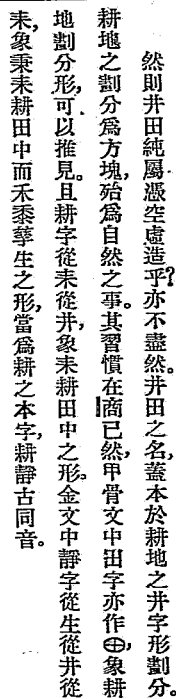 然則井田純屬憑空虛造乎?亦不盡然。井田之名,蓋本於耕地之井字形劃分。
耕地之劃分爲方塊,殆爲自然之事。其習慣在商已然,甲骨文中田字亦作⊕,象耕
地劃分形,可以推見。且耕字從耒從井,象耒耕田中之形。金文中靜字從生從井從
耒,象秉耒耕田中而禾黍孳生之形,當爲耕之本字,耕靜古同音。